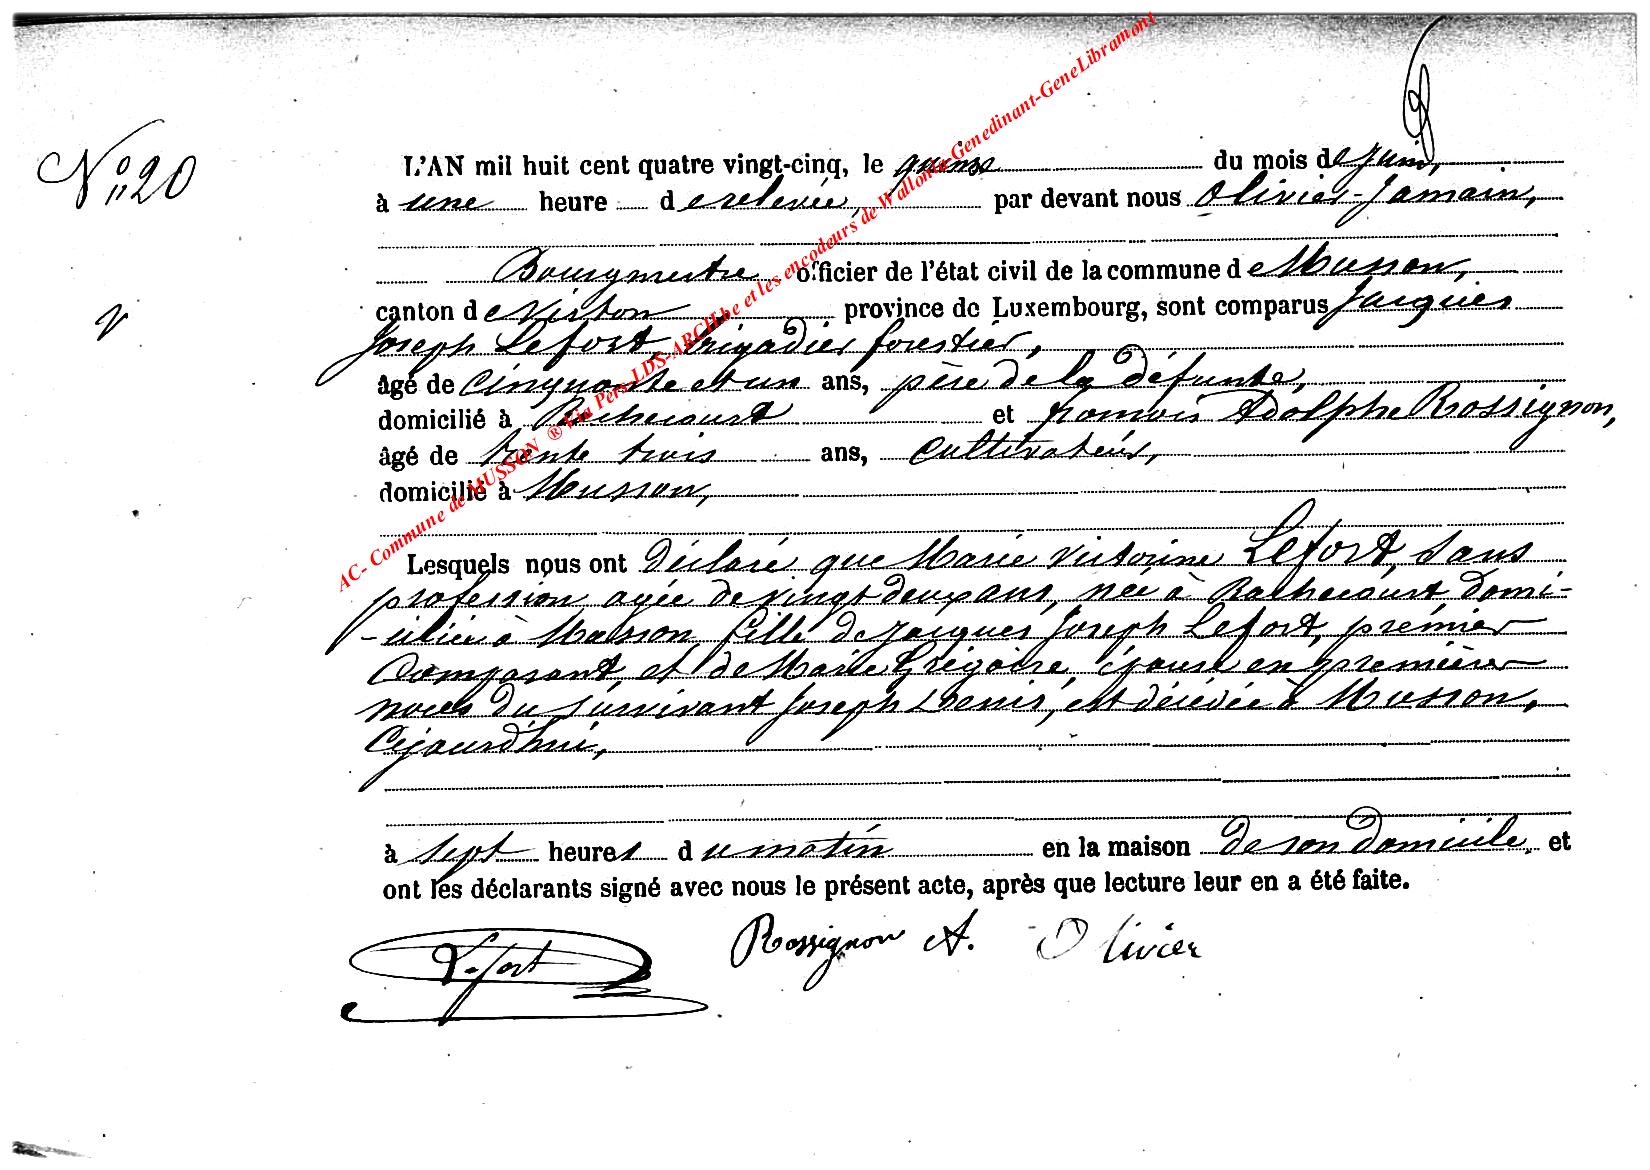 N° 20
L'AN mil huit cent quatre vingt-cinq, le quinze du mois de Juin,
à une heure de relevée, par devant nous Olivier-Jamain,
Bourgmestre officier de l'état civil de la commune de Musson,
canton de Virton province de Luxembourg, sont comparus Jacques
Joseph Lefort, brigadier forestier,
âgé de cinquante et un ans, père de la défunte,
domicilié à Rachecourt et François Adolphe Rossignon,
âgé de trente trois ans, cultivateur,
domicilié à Musson,
Lesquels nous ont déclaré que Marie Victorine Lefort, sans
profession, agée de vingt deux ans, née à Rachecourt, domi-
-ciliée à Musson, fille de Jacques Joseph Lefort, premier
Comparant, et de Marie Grégoire, épouse en premières
noces du survivant Joseph Denis, est décédée à Musson,
Cejourd'hui,
à sept heures du matin en la maison de son domicile, et
ont les déclarants signé avec nous le présent acte, après que lecture leur en a été faite.
Lefort Rossignon A. Olivier
AC- Commune de MUSSON ® Via Pers-LDS-ARCH.be et les encodeurs de Wallonia-Genedinant-GeneLibramont